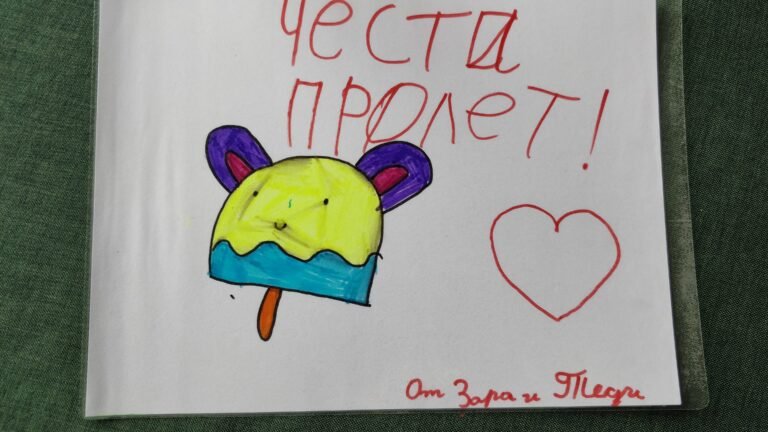 Честа
пролет!
От Зара и Теди